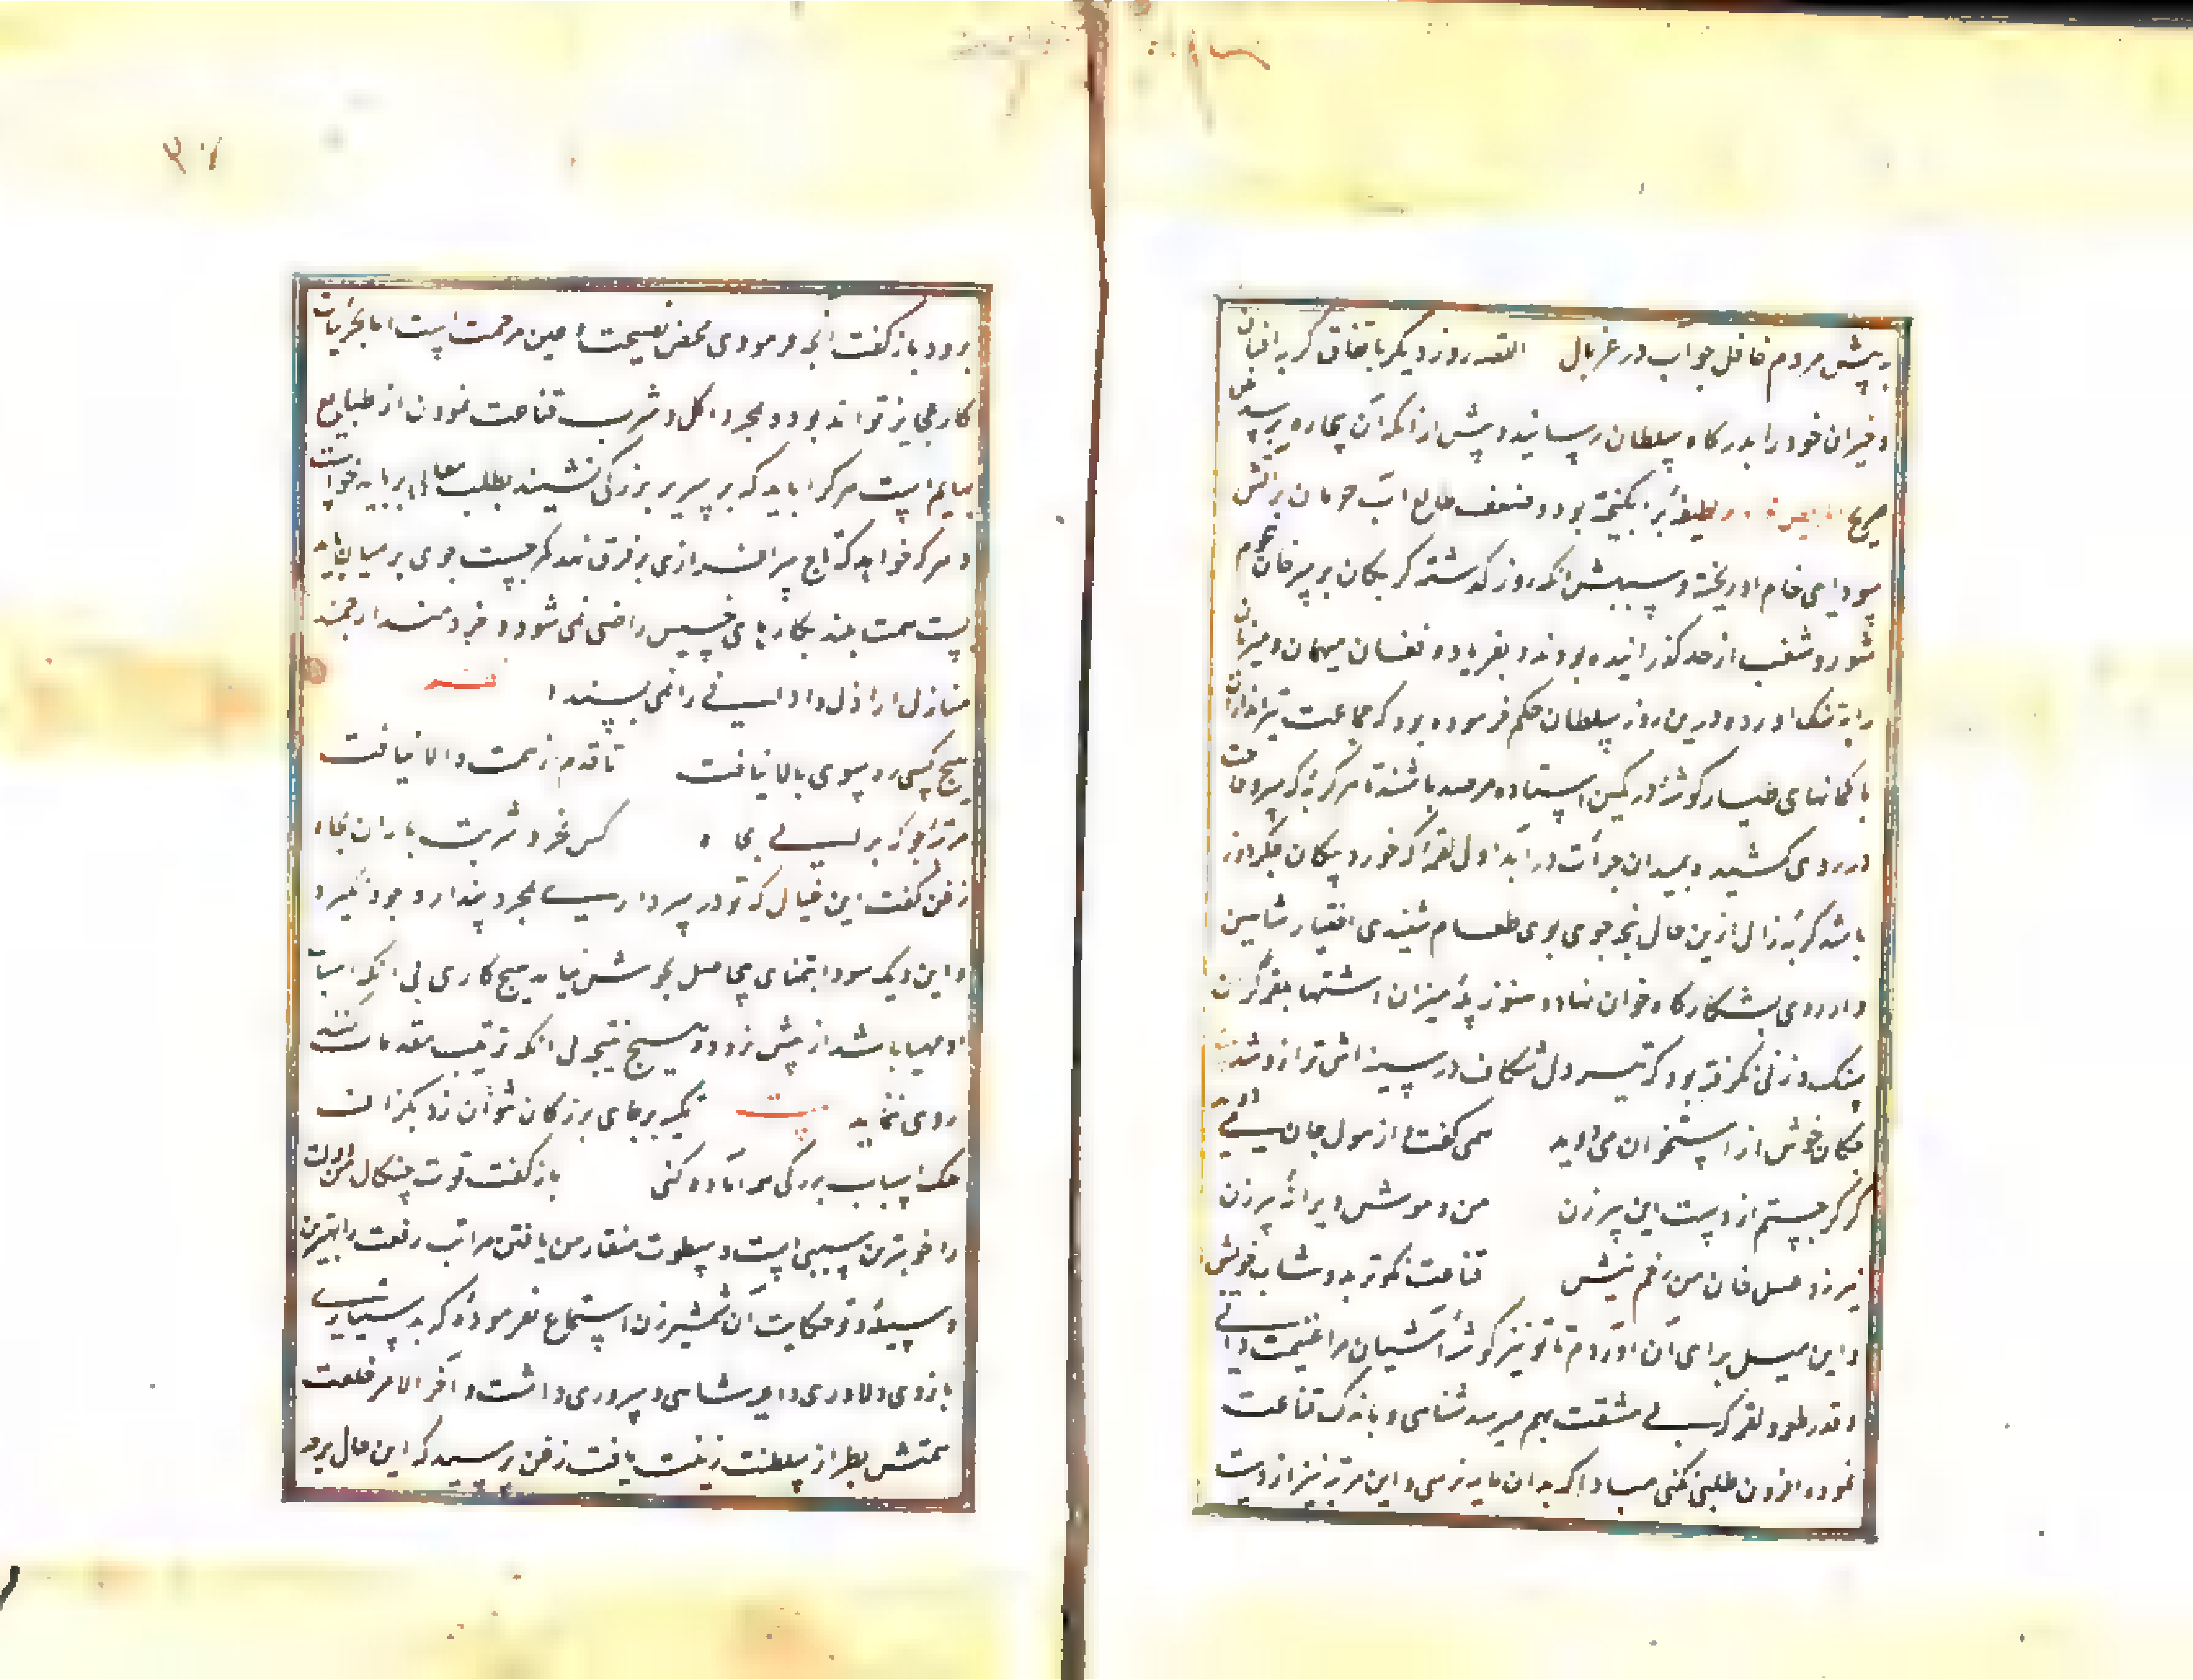 به پیش مردم غافل جو آب در غربال القصه روز دیگر باتفاق گربه افتان
و خیزان خود را بدرگاه سلطان رسانید و پیش از آنکه آن بیچاره برسد
لطیفهٔ برانگیخته بود و ضعف طالع آب حرمان بر آتش
سودای خام او ریخته و سببش آنکه روز گذشته گربکان بر سر خوان هجوم
شور و شغب از حد گذرانیده بودند و بفریاد و فغان میهمان و میزبان
را بتنک اورده و درین روز سلطان حکم فرموده بود که جماعت تیراندازان
با کمانهای در کمین استاده مرصد باشند تا هر گربه که سپر وقاحت
در روی کشیده بمیدان جرأت درآید اول لقمه که خورد پیکان جکردوز
باشد گربهٔ زال ازین حال بیخبر چون بوی طعام شنید بی اختیار شاهین
وار روی بشکارگاه خوان نهاد و هنوز پلهٔ میزان اشتها بلقمه گران
سنک وزنی نگرفته بود که تیر دل شکاف در سینه اش ترازو شد
چکان خونش از استخوان می دوید همی گفت و از هول جان می دوید
که گر جستم از دست این تیرزن من و موش و ویرانهٔ پیرزن
نیرزد عسل جان من زخم نیش قناعت نکوتر بدوشاب خویش
و این مثل برای آن آوردم تا تو نیز گوشهٔ آشیان مرا غنیمت دانی
و قدر طعمه و لقمه که بی مشقت بهم میرسد شناسی و باندک قناعت
نموده افزون طلبی نکنی مبادا که بدان مایه نرسی و این مرتبه نیز از دست
۳۷
برود باز گفت آنچه فرمودی محض نصیحت و عین مرحمت است اما بجزئیات
کار عجایز تواند بود و بمجرد اکل و شرب قناعت نمودن از طبایع
بهایم است هرکرا باید که بر سریر بزرگی نشیند بطلب معالی بر باید خواست
و هر که خواهد که تاج سرافرازی بر فرق نهد کمر جست و جوی بر میان باید
بست همت بلند بکارهای خسیس راضی نمی شود و خردمند ارجمند
منازل اراذل و ادانی را نمی پسندد
هیچ کسی ره سوی بالا نیافت تا قدم از همت والا نیافت
مرتبه جو که برآیی بماه کس نخورد شربت باران بچاه
زغن گفت این خیالی که تو در سر داری بمجرد پندار وجود نگیرد
و این دیک سودا بتمنای بی حاصل بجوش نیاید هیچ کاری بی آنکه اسباب
او مهیا باشد از پیش نرود و هیچ نتیجه بی آنکه ترتیب مقدمات کنند
روی ننماید بیت تکیه بر جای بزرگان نتوان زد بگزاف
مگر اسباب بزرگی همه آماده کنی باز گفت قوت چنگال من دولت
را خوبترین سببی است و سطوت منقار من یافتن مراتب رفعت را بهترین
وسیلهٔ و تو حکایت آن شمشیرزن استماع نفرمودهٔ که بدستیاری
بازوی دلاوری داعیهٔ شاهی و سروری داشت و آخرالامر خلعت
همتش بطراز سلطنت زینت یافت زغن پرسید که این حال بر چه